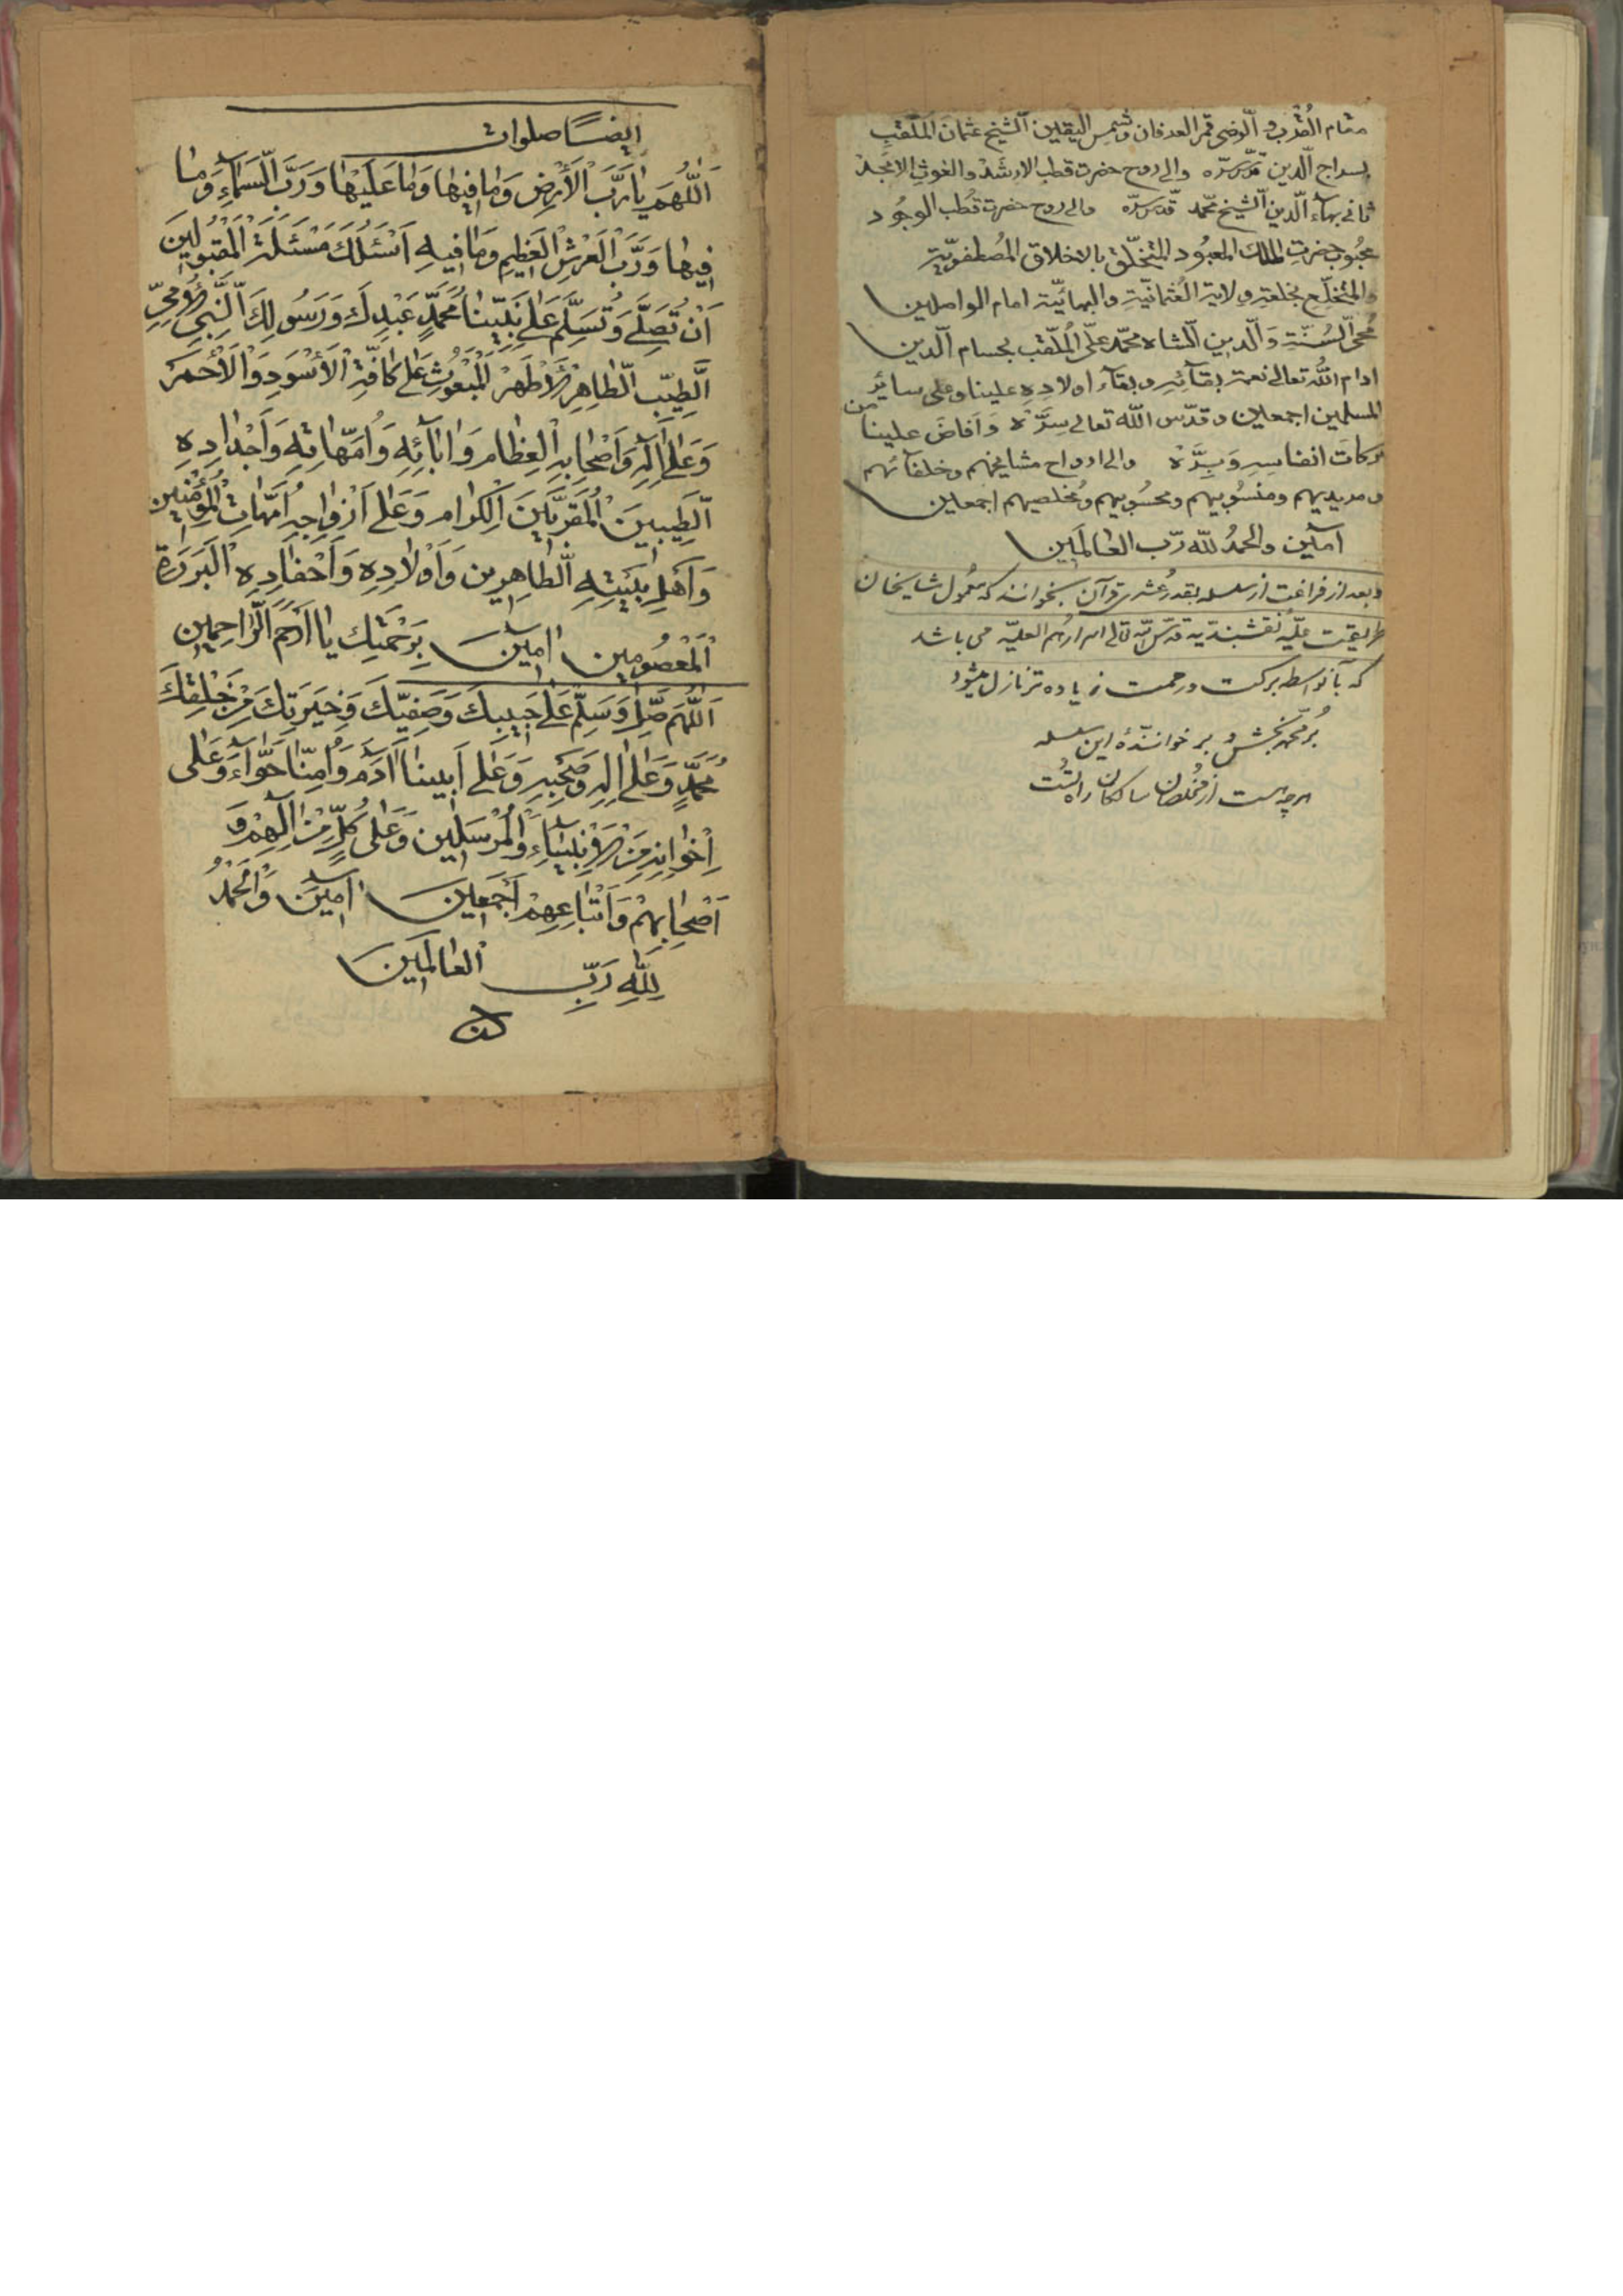 مقام القُرب و الرضى قمر العرفان وشمس اليقين الشيخ عثمان الملقب
بسراج الدين قدّس سرّه والى روح حضرت قطب الارشد والغوث الامجد
ثانى بهآء الدين الشيخ محمّد قدّس سرّه والى روح حضرت قُطب الوجُود
محبُوب حضرتِ الملك المعبُود المتخلّق بالاخلاق المُصطفويّة
والمُتخلّع بخلعةِ ولاية العُثمانيّةِ والبهائيّة امام الواصلين
مُحى السُنّةِ والدين الشاه محمّد علىّ المُلقّب بحسام الدين
ادام اللّه تعالى نعمة بقآئِهِ وبقآء اولادِهِ علينا وعلى سائر
المسلمين اجمعين وقدّس اللّه تعالى سِرَّهُ وَاَفاضَ علينا من
بركات انفاسِهِ وَبِرَّهُ والى ارواح مشايخهم وخلفآئهم
ومريديهم ومنسُوبيهم ومحسُوبيهم ومُخلصيهم اجمعين
آمين والحمدُ للّه ربّ العالمَين
وبعد از فراغت از سلسله بقدر عُشرى قرآن بخوانند كه معُمول مشايخان
طريقت عليّه نقشبنديّه قدّس اللّه تعالى اسرارهُم العليّه مى باشد
كه بآنواسطه بركت و رحمت زياده تر نازل ميشود
بُر محمّد بخش و بر خوانندهٔ اين سلسله
هرچه هست از مُخلصان و سالكان راه تُست
ايضًا صلوات
اَللّٰهُمَ يا رَبَّ الْاَرْضِ وَما فيها وَما عَلَيْها وَرَبَّ السَمآءِ وَما
فيها وَرَبَّ الْعَرْشِ الْعَظيمِ وَما فيهِ اَسْئَلُكَ مَسْئَلَةَ الْمَقبُولينَ
اَنْ تُصَلّىَ وَتُسَلّمَ عَلى نَبِيّنا مُحَمَّدٍ عَبْدِكَ وَرَسُولِكَ النَّبِىِّ الْاُمِىِّ
الَطِيّبِ الطاهِرِ الْاَطْهَرِ الْمَبْعُوثِ عَلى كافّةِ الْاَسْوَدِ وَالْاَحْمَرِ
وَعَلى الِهِ وَاَصْحابِهِ الْعِظامِ وَابآئِهِ وَاُمَّهاتِهِ وَاَجْدادِهِ
الطَيِبينَ الْمُقَرَّبينَ الْكِرامِ وَعَلى اَزْواجِهِ اُمَّهاتِ الْمُؤْمِنينَ
وَاَهْلِ بَيْتِهِ الطاهِرِين وَاَوْلادِهِ وَاَحْفادِهِ الْبَرَرَةِ
الْمَعْصُومين آمينَ بِرَحْمَتِكَ يا اَرْحَمَ الرّاحِمين
اَللّٰهُمَ صَلّ وَسَلِّمْ عَلى حَبيبِكَ وَصَفِيّكَ وَخِيَرَتِكَ مِنْ خَلْقِكَ
مُحَمَّدٍ وَعَلى الِهِ وَصَحْبِهِ وَعَلى اَبينا آدَمَ وَاُمِّنا حَوّآءَ وَعَلى
اِخْوانِهِ مِنَ الْاَنْبِيآءِ وَالْمُرْسَلين وَعَلى كُلٍّ مِنْ الِهِمْ وَ
اَصْحابِهِمْ وَاَتْباعِهِمْ اَجْمَعينَ آمينَ وَالْحَمْدُ
لِلّٰهِ رَبِّ الْعالَمينَ